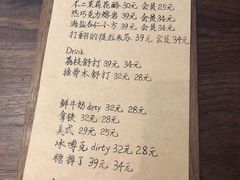 不二茉莉花酪 30元 会员 25元
热巧克力熔岩 39元 会员 34元
海盐杏仁小方 39元 会员 34元
打翻的提拉米苏 39元 会员 34元
Drink
荔枝舒打 39元 34元
接骨木舒打 32元 28元
鲜牛奶dirty 32元 28元
拿铁 32元 28元
美式 29元 25元
冰博克dirty 32元 28元
糖掉了 39元 34元